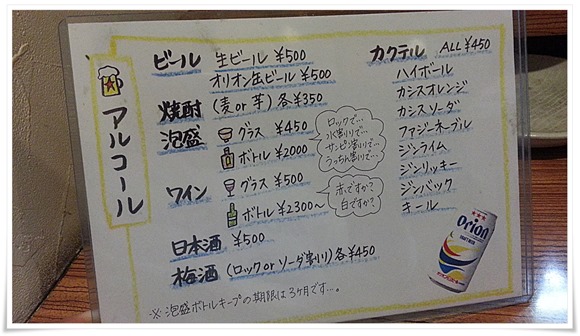 アルコール
ビール 生ビール ¥500
オリオン缶ビール ¥500
焼酎 (麦or芋) 各¥350
泡盛 グラス ¥450
ボトル ¥2000
ロックで…
水割りで…
サンピン割りで…
うっちん割りで…
ワイン グラス ¥500
ボトル ¥2300~
赤ですか?
白ですか?
日本酒 ¥500
梅酒 (ロックorソーダ割り) 各¥450
※泡盛ボトルキープの期限は3ヶ月です…。
カクテル ALL ¥450
ハイボール
カシスオレンジ
カシスソーダ
ファジーネーブル
ジンライム
ジンリッキー
ジンバック
キール
Orion